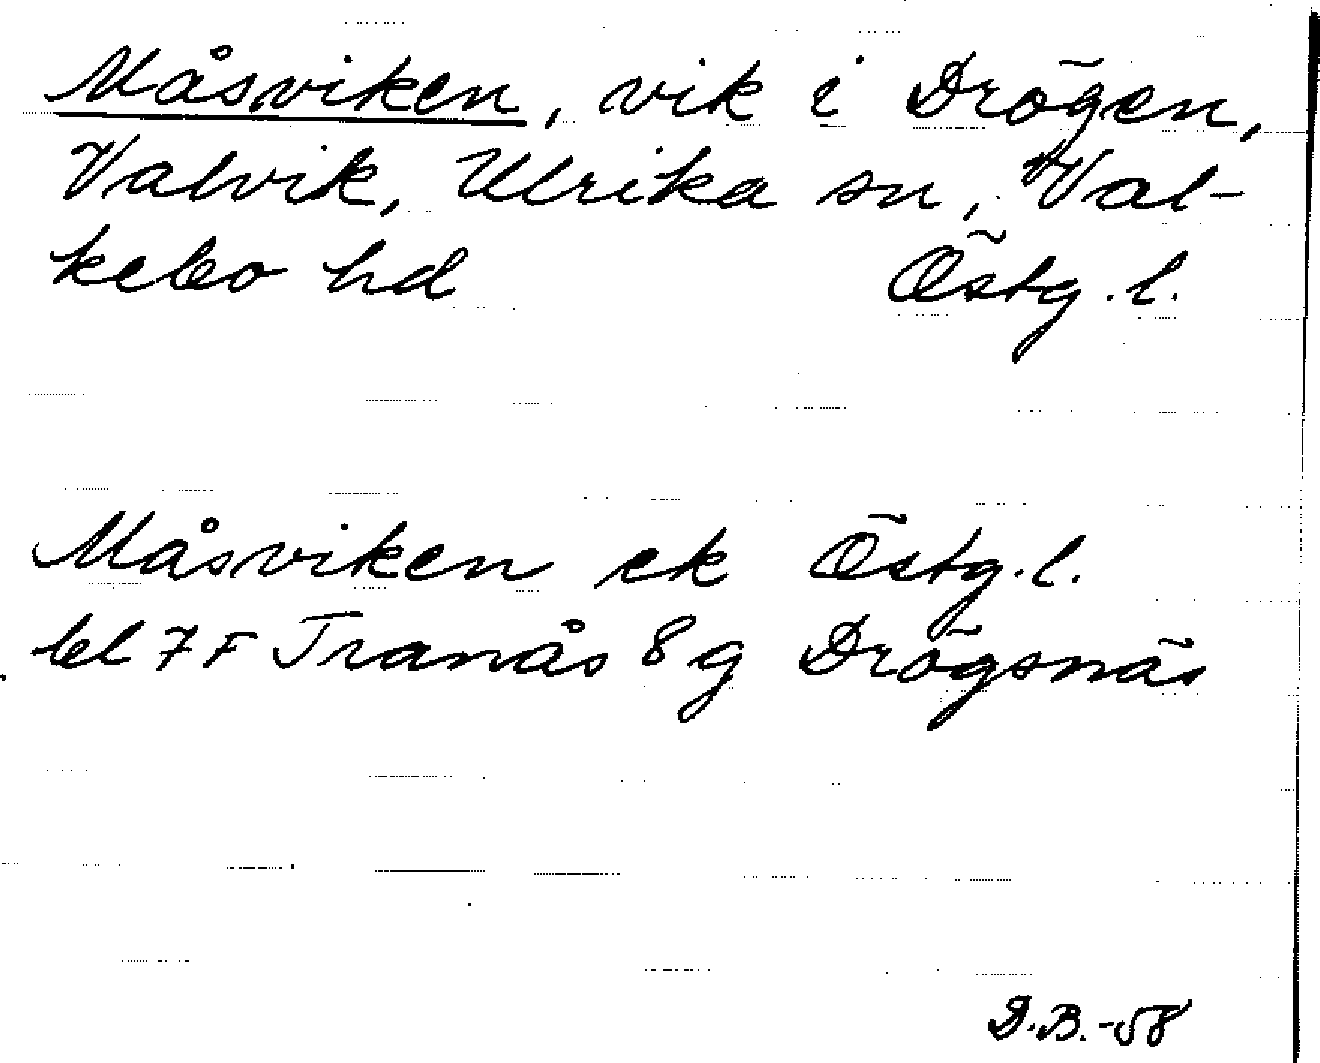 Måsviken, vik i Drögen,
Valvik, Ulrika sn, Val-
kebo hd Östg. l.
Måsviken ek Östg. l.
bl 7 F Tranås 8 g Drögsnäs
D.B. -58